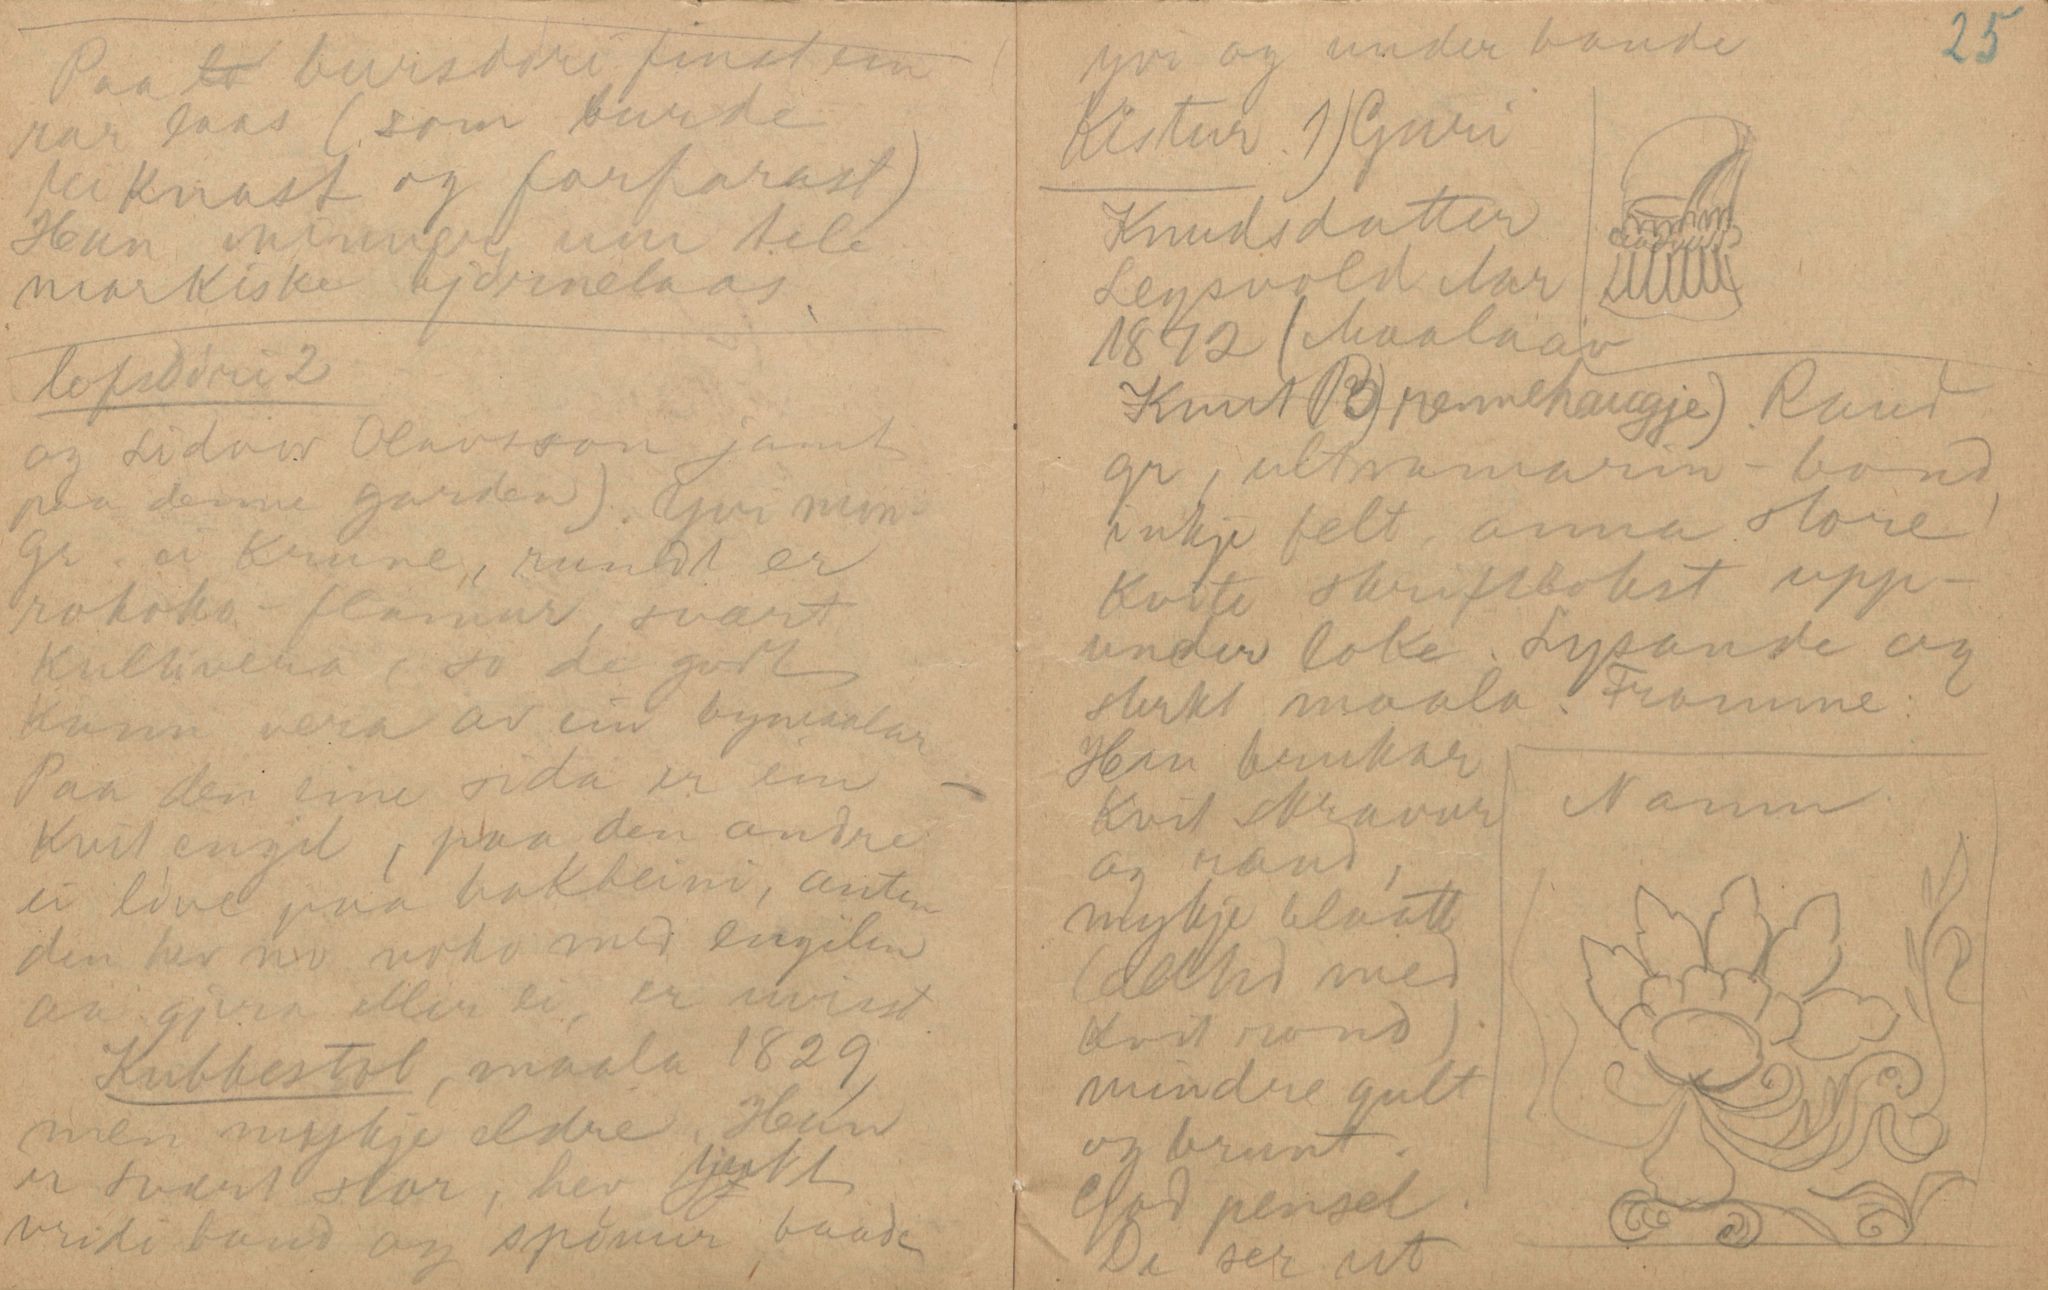 Paa to bursdöri finst ein
rar laas (som burde
teiknast og forfarast)
Han minner um tele
markiske bjørnelaas.
lofsdöri 2
og Lidvor Olavsson jamt
paa denne garden). Yvi
gr. ei Krune, rundt er
rokoko-flamur, svært
Kultivera, so de godt
Kunn vera av ein bymaalar
Paa den eine sida er ein
Kvit engil, paa den andre
ei löve paa bakbeini, anten
den hev no noko med engilen
aa gjera eller ei, er uvist
Kubbestol, maala 1829,
men mykje eldre. Han
er svært stor, hev
vridi band og spönur baade
25
yvi og under bande
Kistur. 1) Guri
Knudsdatter
Leysvold Aar
1842 (Maala av
Knut Brennehaugje) Raud
gr, ultramarin-band,
inkje felt, anna store
Kvite skriftbokst upp-
under loke. Lysande og
sterkt maala. Framme:
Han brukar
Kvit skravur
og rand,
mykje blaatt
(alltid med
Kvit rand)
mindre gult
og brunt.
God pensel.
De ser ut
Namn